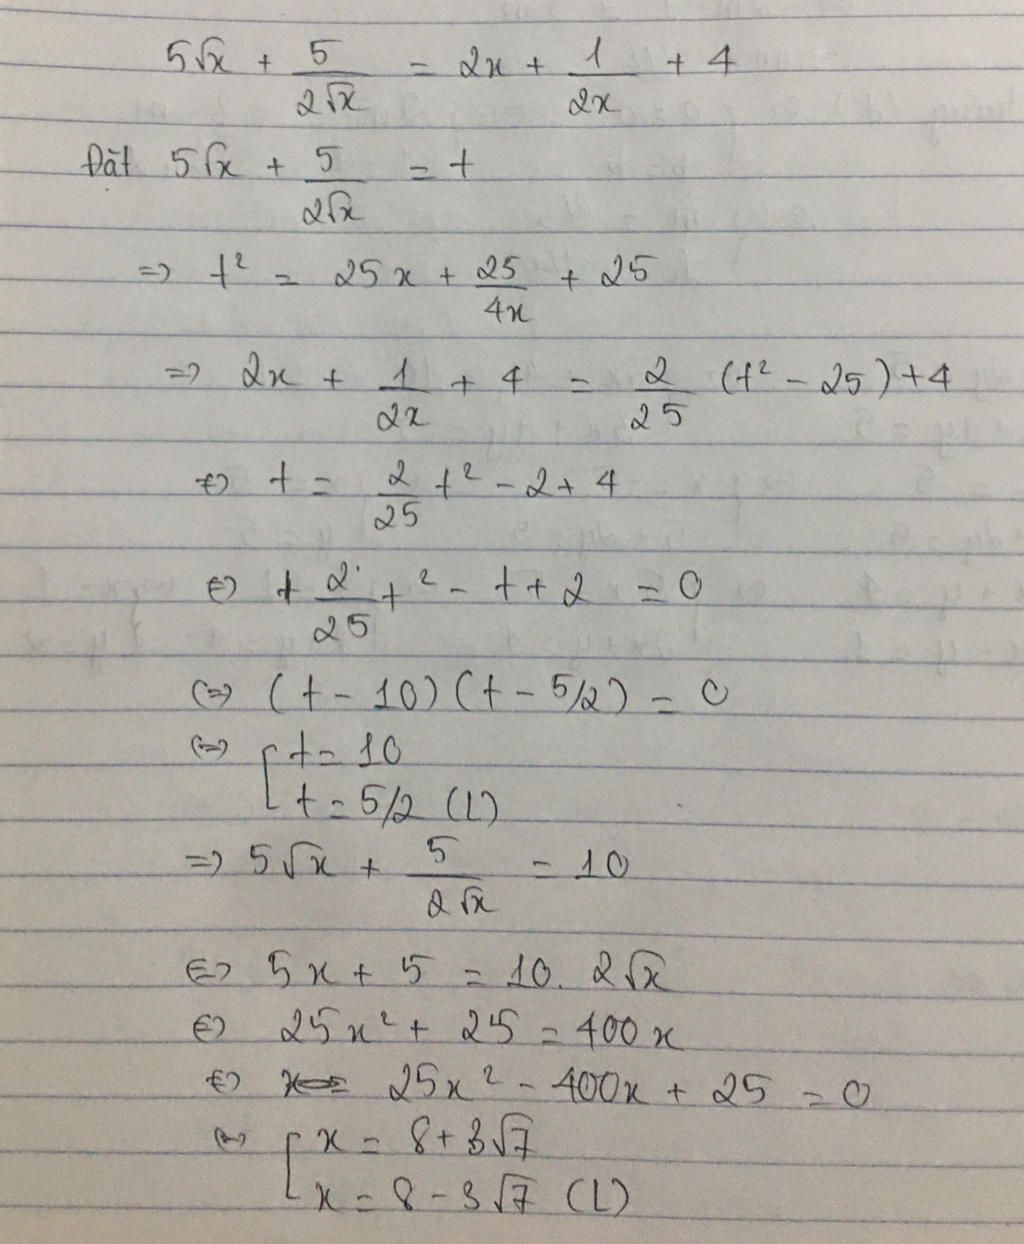 5√x + 5/(2√x) = 2x + 1/(2x) + 4
Đặt 5√x + 5/(2√x) = t
=> t² = 25x + 25/(4x) + 25
=> 2x + 1/(2x) + 4 = 2/25 (t² - 25) + 4
<=> t = 2/25 t² - 2 + 4
<=> t 2/25 t² - t + 2 = 0
<=> (t - 10)(t - 5/2) = 0
<=> [ t = 10
t = 5/2 (L)
=> 5√x + 5/(2√x) = 10
<=> 5x + 5 = 10. 2√x
<=> 25x² + 25 = 400x
<=> 25x² - 400x + 25 = 0
<=> [ x = 8 + 3√7
x = 8 - 3√7 (L)